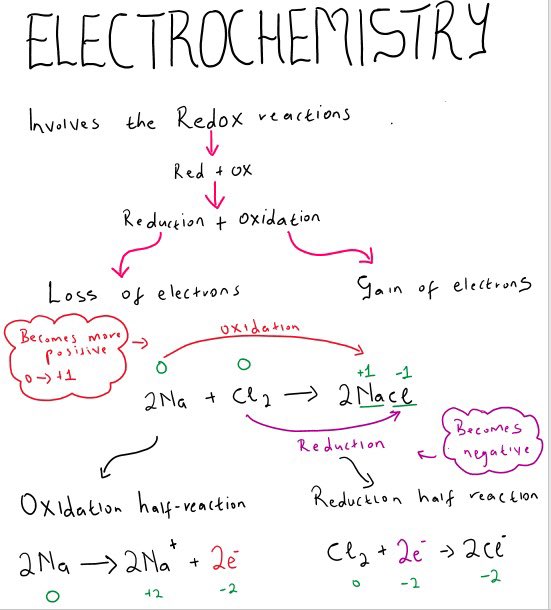 ELECTROCHEMISTRY
Involves the Redox reactions
Red + ox
Reduction + Oxidation
Loss of electrons
Gain of electrons
Becomes more
positive
0 → +1
oxidation
0 0 +1 -1
2Na + Cl₂ → 2NaCl
Reduction
Becomes
negative
Oxidation half-reaction
Reduction half reaction
2Na → 2Na⁺ + 2e⁻
0 +2 -2
Cl₂ + 2e⁻ → 2Cl⁻
0 -2 -2